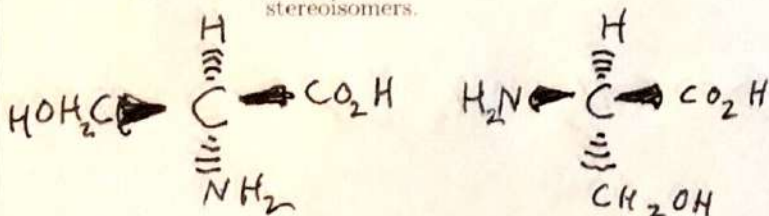 stereoisomers.
H H
HOH₂C C CO₂H H₂N C CO₂H
NH₂ CH₂OH